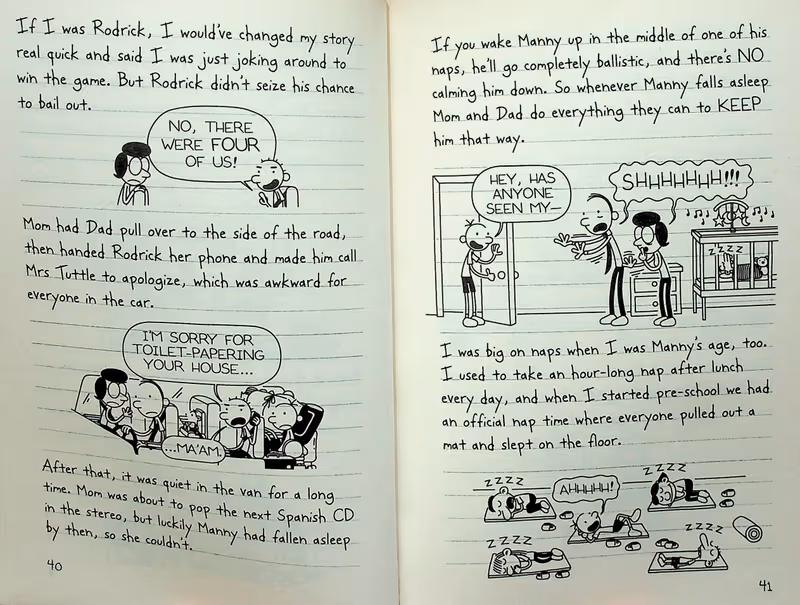 If I was Rodrick, I would've changed my story
real quick and said I was just joking around to
win the game. But Rodrick didn't seize his chance
to bail out.
NO, THERE
WERE FOUR
OF US!
Mom had Dad pull over to the side of the road,
then handed Rodrick her phone and made him call
Mrs Tuttle to apologize, which was awkward for
everyone in the car.
I'M SORRY FOR
TOILET-PAPERING
YOUR HOUSE...
...MA'AM.
After that, it was quiet in the van for a long
time. Mom was about to pop the next Spanish CD
in the stereo, but luckily Manny had fallen asleep
by then, so she couldn't.
40
If you wake Manny up in the middle of one of his
naps, he'll go completely ballistic, and there's NO
calming him down. So whenever Manny falls asleep
Mom and Dad do everything they can to KEEP
him that way.
HEY, HAS
ANYONE
SEEN MY—
SHHHHHHH!!!
ZZZZ
I was big on naps when I was Manny's age, too.
I used to take an hour-long nap after lunch
every day, and when I started pre-school we had
an official nap time where everyone pulled out a
mat and slept on the floor.
ZZZZ
AHHHHH!
ZZZZ
ZZZZ
ZZZZ
41